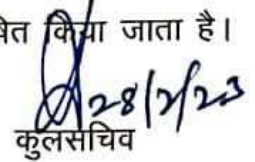 किया जाता है।
28/2/23
कुलसचिव